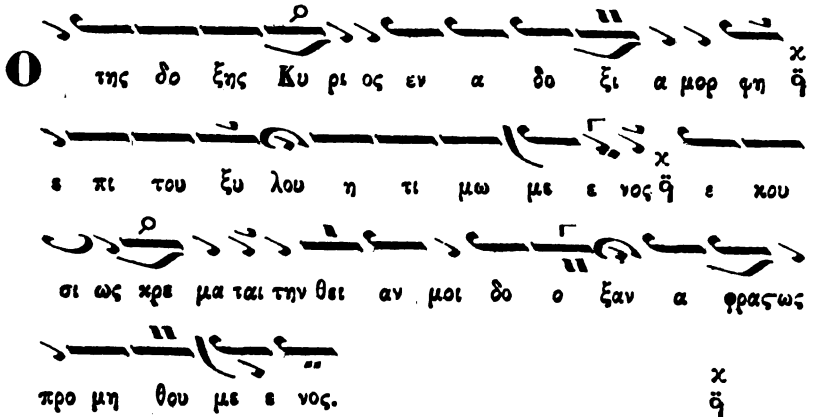 Ο της δο ξης Κυ ρι ος εν α δο ξι α μορ φη ϰ q̈
ε πι του ξυ λου η τι μω με ε νος ϰ q̈ ε κου
σι ως κρε μα ται την θει αν μοι δο ο ξαν α φρασ τως
προ μη θου με ε νος. ϰ q̈